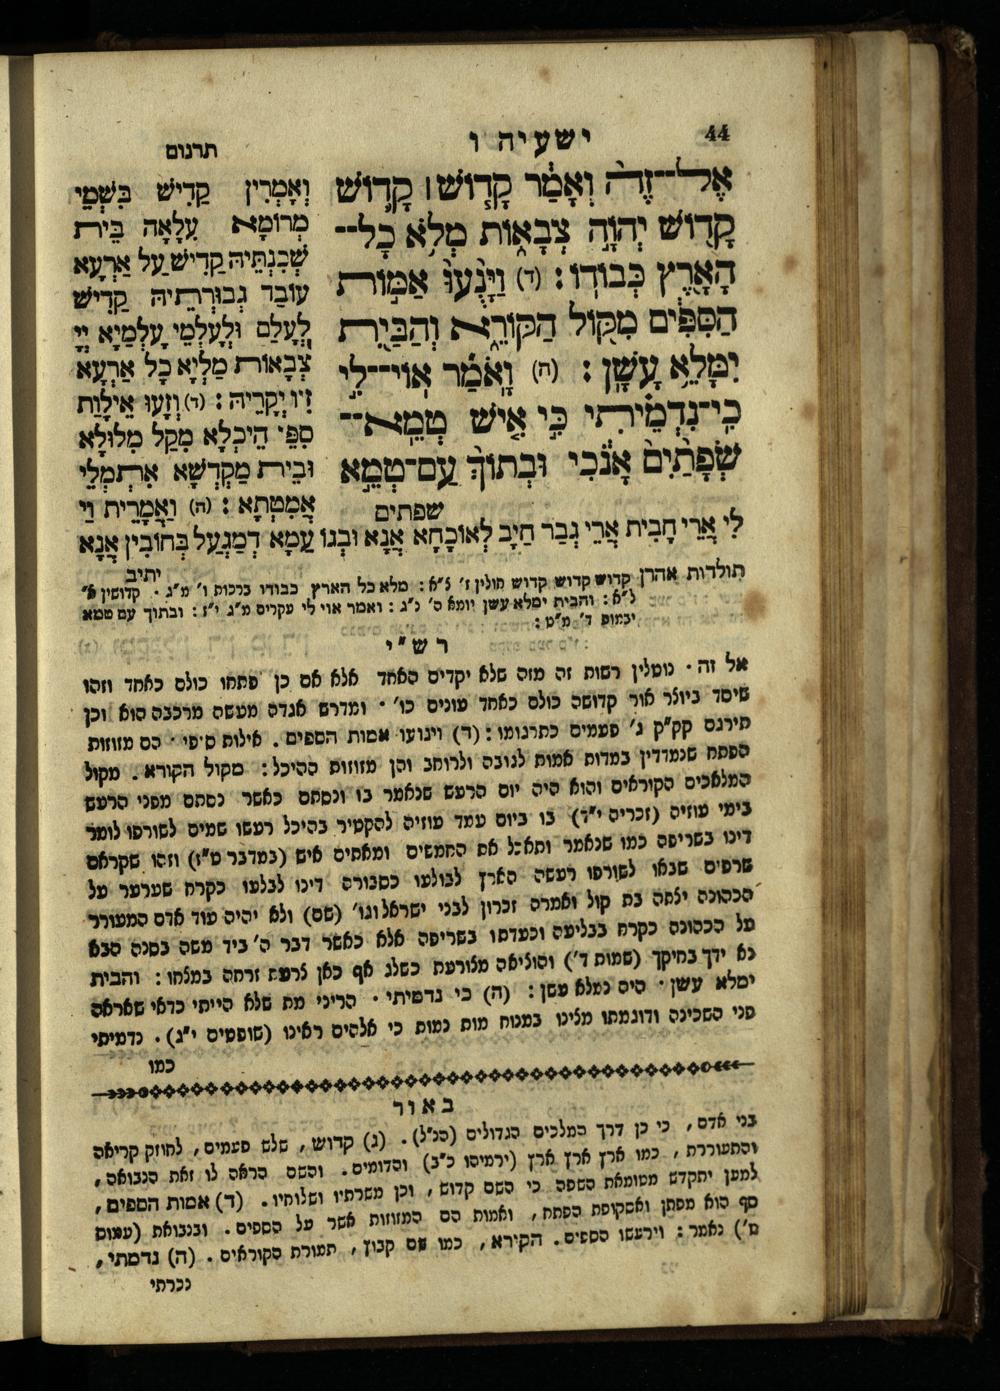 44
ישעיה ו
תרגום
אֶל־זֶה֙ וְאָמַ֔ר קָד֧וֹשׁ ׀ קָד֛וֹשׁ
קָד֖וֹשׁ יְהוָ֣ה צְבָא֑וֹת מְלֹ֥א כָל־
הָאָ֖רֶץ כְּבוֹדֽוֹ׃ (ד) וַיָּנֻ֙עוּ֙ אַמּ֣וֹת
הַסִּפִּ֔ים מִקּ֖וֹל הַקּוֹרֵ֑א וְהַבַּ֖יִת
יִמָּלֵ֥א עָשָֽׁן׃ (ה) וָאֹמַ֞ר אֽוֹי־לִ֣י
כִֽי־נִדְמֵ֗יתִי כִּ֣י אִ֤ישׁ טְמֵֽא־
שְׂפָתַ֙יִם֙ אָנֹ֔כִי וּבְתוֹךְ֙ עַם־טְמֵ֣א
שפתים
וְאָמְרִין קַדִישׁ בִּשְׁמֵי
מְרוֹמָא עִלָאָה בֵּית
שְׁכִנְתֵּיהּ קַדִישׁ עַל אַרְעָא
עוֹבַד גְבוּרְתֵּיהּ קַדִישׁ
לְעָלַם וּלְעָלְמֵי עָלְמַיָא יְיָ
צְבָאוֹת מַלְיָא כָל אַרְעָא
זִיו יְקָרֵיהּ׃ (ד) וְזָעוּ אֵילָוַת
סִפֵּי הֵיכְלָא מִקַל מִלוּלָא
וּבֵית מַקְדְשָׁא אִתְמְלֵי
אֲמִטְתָא׃ (ה) וַאֲמָרֵית וַי
לִי אֲרֵי חָבִית אֲרֵי גְבַר חַיָב לְאוֹכָחָא אֲנָא וּבְגוֹ עַמָא דִמְגַעַל בְּחוֹבִין אֲנָא
יתיב
תולדות אהרן קדוש קדוש קדוש חולין ז' צ"א: מלא כל הארץ כבודו ברכות ו' מ"ג. קדושין א'
ל"א: והבית ימלא עשן יומא ה' נ"ג: ואמר אוי לי עקרים מ"ג י"ז: ובתוך עם טמא
יבמות ד' מ"ט:
רש"י
אל זה. נוטלין רשות זה מזה שלא יקדים האחד אלא אם כן פתחו כולם כאחד וזהו
שיסד ביוצר אור קדושה כולם כאחד עונים כו'. ומדרש אגדה מעשה מרכבה הוא וכן
תירגם קק"ק ג' פעמים כתרגומו: (ד) וינועו אמות הספים. אילות סיפי. הם מזוזות
הפתח שנמדדין במדות אמות לגובה ולרוחב והן מזוזות ההיכל: מקול הקורא. מקול
המלאכים הקוראים והוא היה יום הרעש שנאמר בו ונסתם כאשר נסתם מפני הרעש
בימי עוזיה (זכריה י"ד) בו ביום עמד עוזיה להקטיר בהיכל רעשו שמים לשורפו לומר
דינו בשריפה כמו שנאמר ותאכל את החמשים ומאתים איש (במדבר ט"ז) וזהו שקראם
שרפים שבאו לשורפו רעשה הארץ לבולעו כסבורה דינו לבלעו כקרח שערער על
הכהונה יצתה בת קול ואמרה זכרון לבני ישראל וגו' (שם) ולא יהיה עוד אדם המעורר
על הכהונה כקרח בבליעה וכעדתו בשריפה אלא כאשר דבר ה' ביד משה בסנה הבא
נא ידך בחיקך (שמות ד') והוציאה מצורעת כשלג אף כאן צרעת זרחה במצחו: והבית
ימלא עשן. היה נמלא עשן: (ה) כי נדמיתי. הריני מת שלא הייתי כדאי שאראה
פני השכינה ודוגמתו מצינו במנוח מות נמות כי אלהים ראינו (שופטים י"ג). נדמיתי
כמו
באור
בני אדם, כי כן דרך המלכים הגדולים (הנ"ל). (ג) קדוש, שלש פעמים, לחוזק קריאה
והתעוררת, כמו ארץ ארץ ארץ (ירמיהו כ"ב) והדומים. והשם הראה לו זאת הנבואה,
למען יתקדש מטומאת השפה כי השם קדוש, וכן משרתיו ושלוחיו. (ד) אמות הספים,
סף הוא מפתן ואסקופת הפתח, ואמות הם המזוזות אשר על הספים. ובנבואת (עמוס
ט') נאמר: וירעשו הספים. הקורא, כמו שם קבוץ, תמורת הקוראים. (ה) נדמתי,
נכרתי